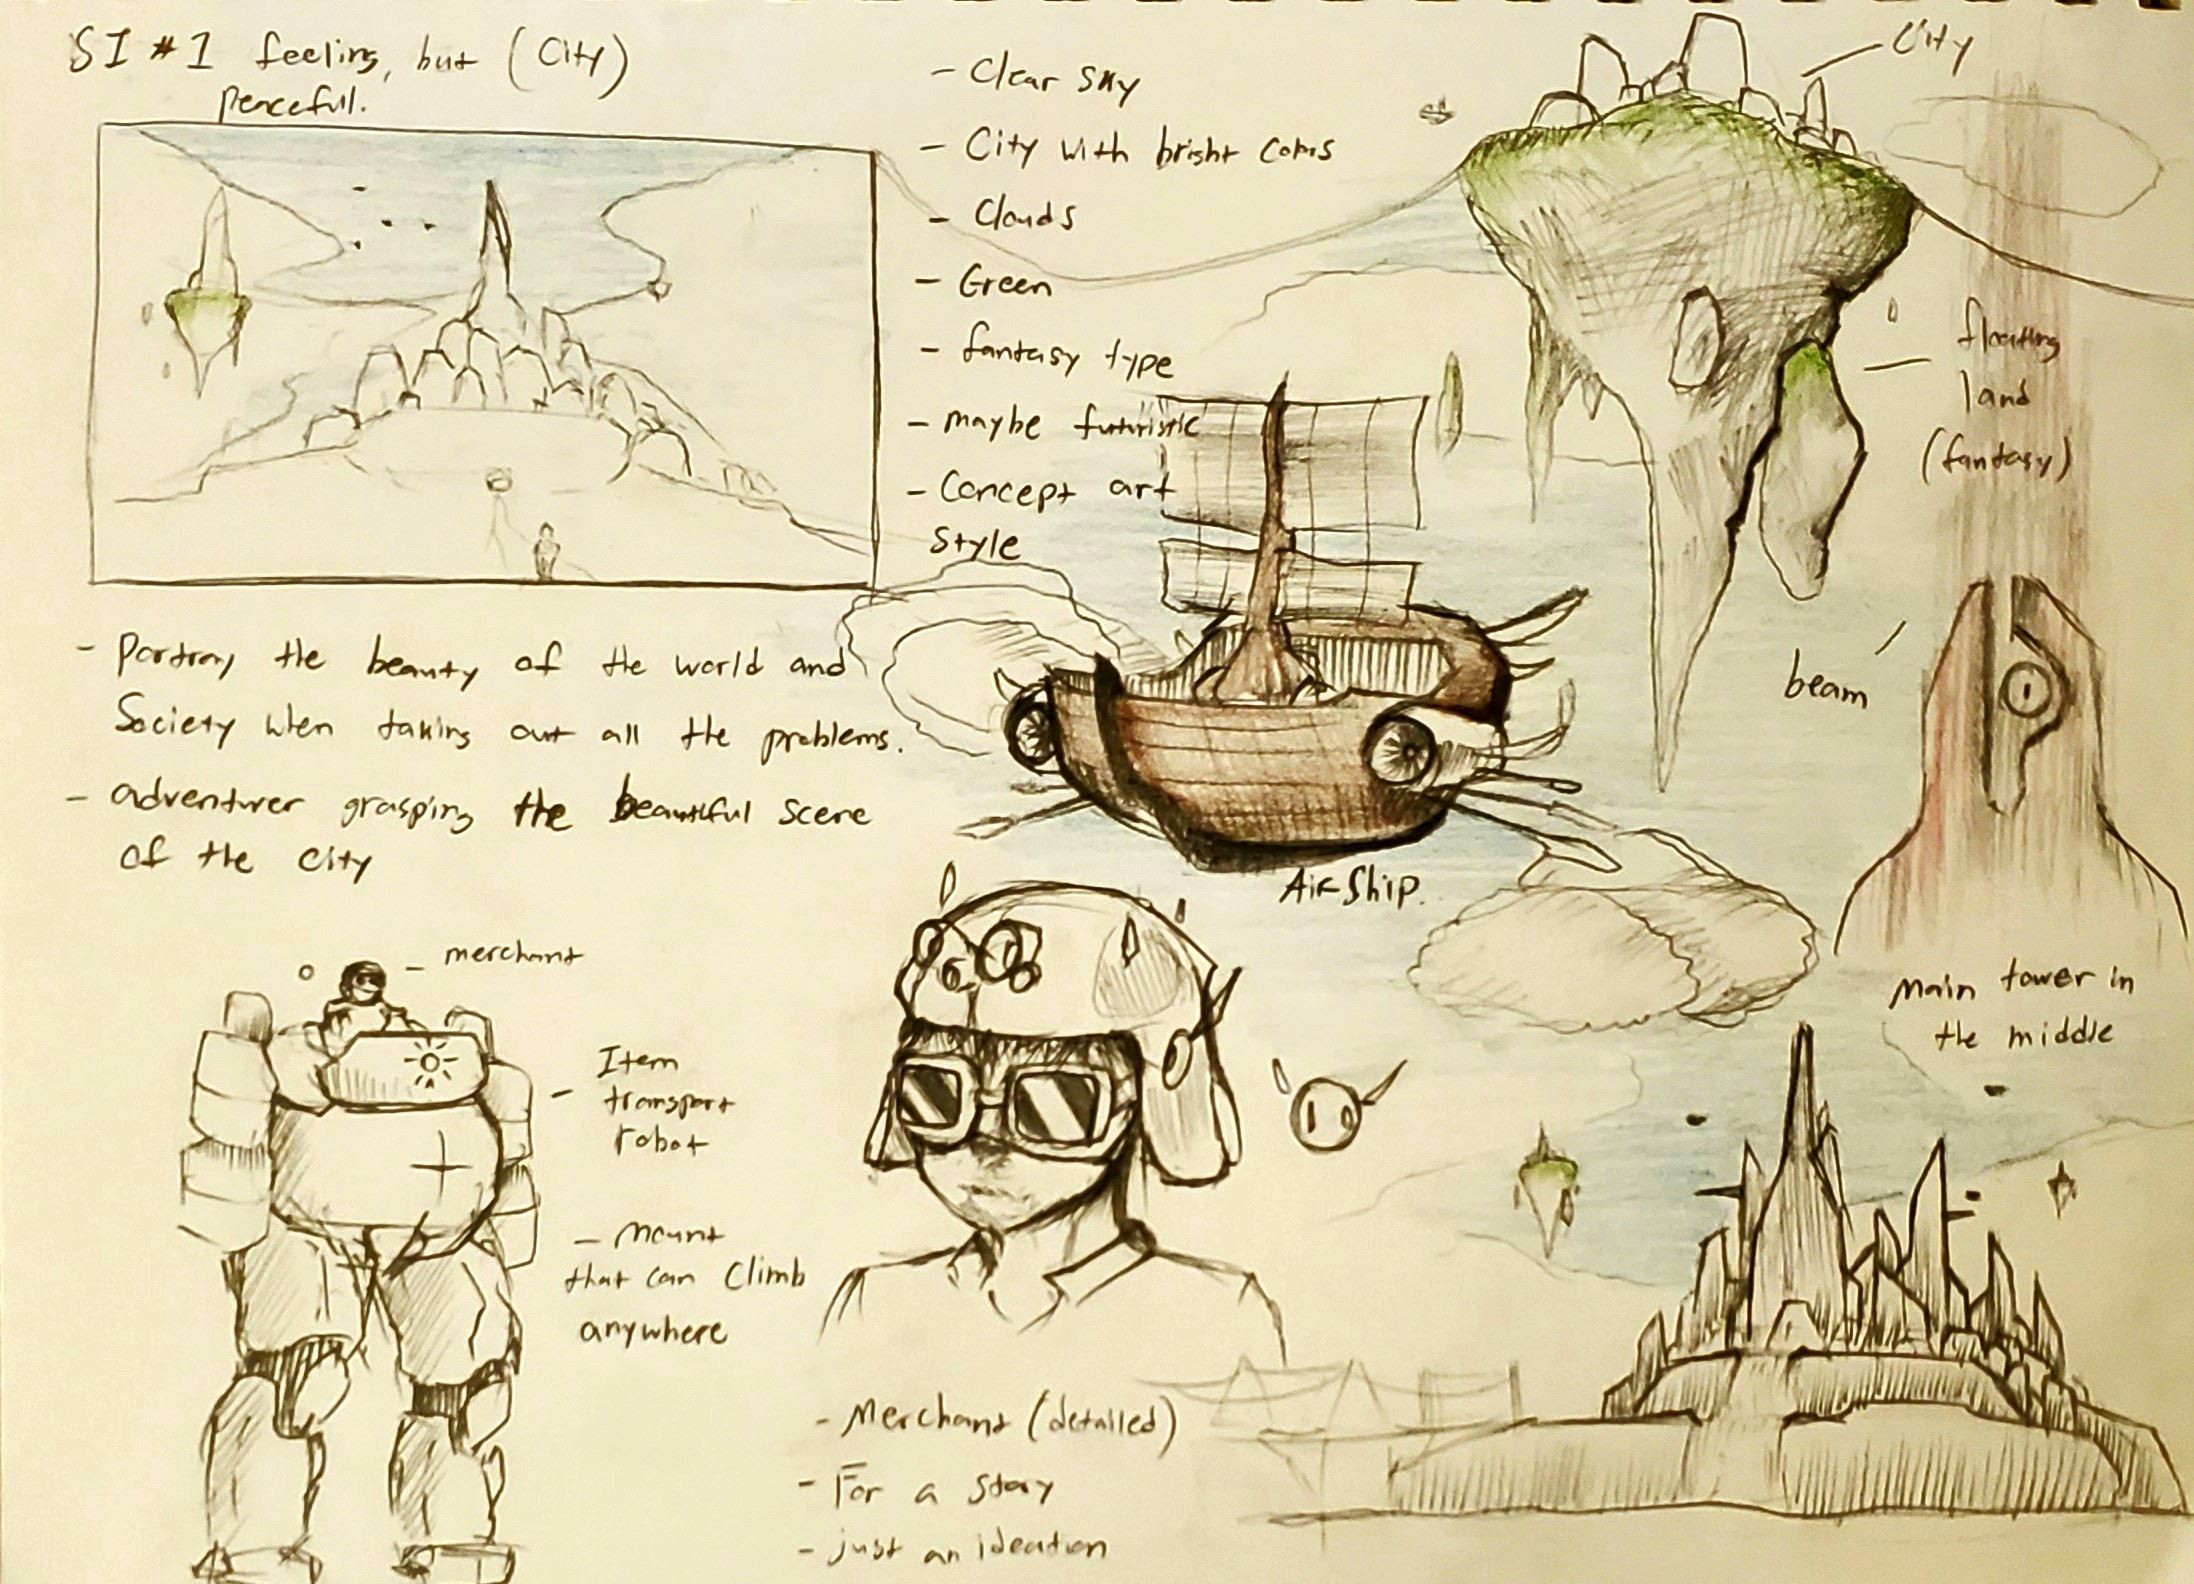 SI #1 feeling, but (City)
peaceful.
- Clear sky
- City with bright colors
- Clouds
- Green
- fantasy type
- maybe futuristic
- Concept art
style
City
floating
land
(fantasy)
beam
- Portray the beauty of the world and
Society when taking out all the problems.
- adventurer grasping the beautiful scene
of the city
Air Ship.
main tower in
the middle
- merchant
- Item
transport
robot
- Mount
that can climb
anywhere
- Merchant (detailed)
- For a story
- just an ideation